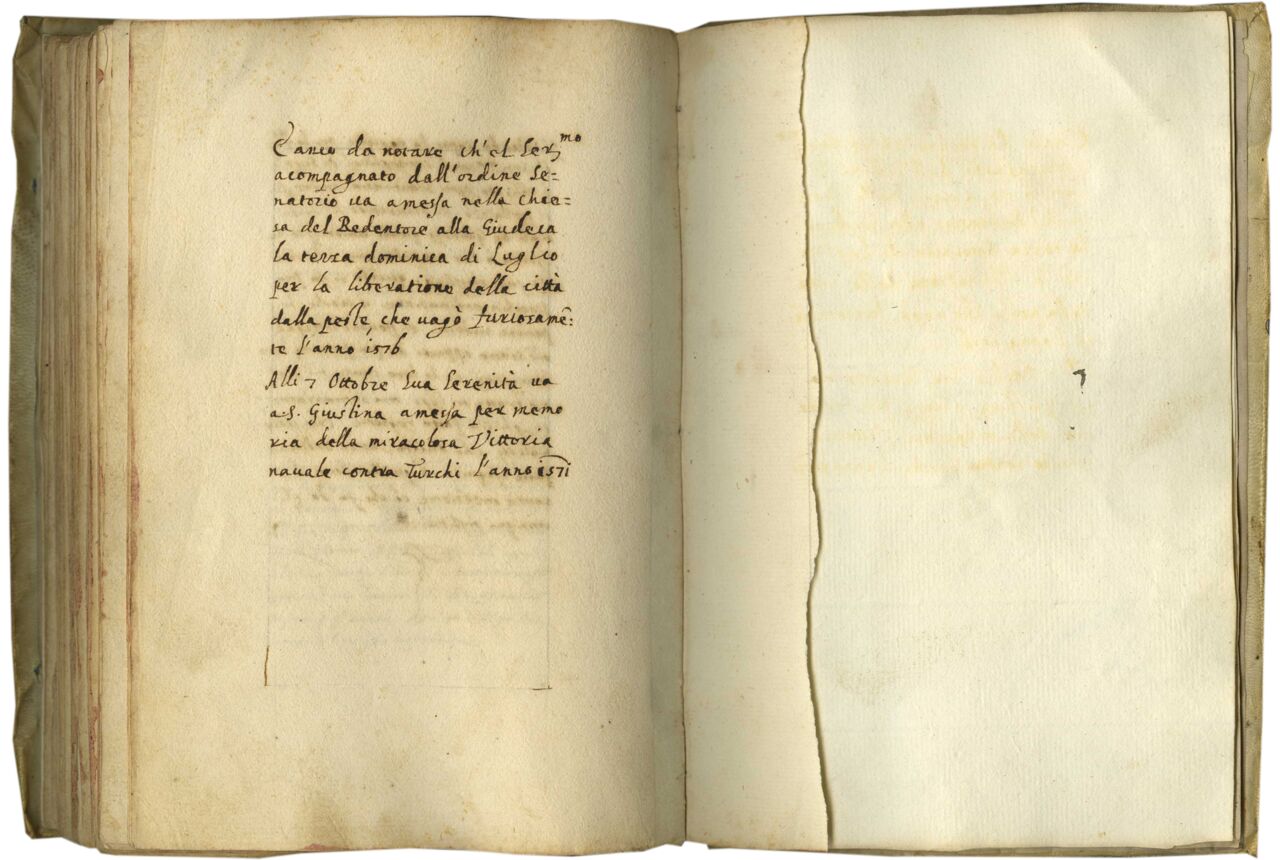 È anco da notare ch'el Ser.mo
acompagnato dall'ordine Se=
natorio ua a messa nella chie=
sa del Redentore alla Giudeca
la terza dominica di Luglio
per la liberatione della città
dalla peste, che uagò furiosamē:
te l'anno 1576
Alli 7 Ottobre Sua Serenità ua
a S. Giustina a messa per memo
ria della miracolosa Vittoria
nauale contra Turchi l'anno 1571